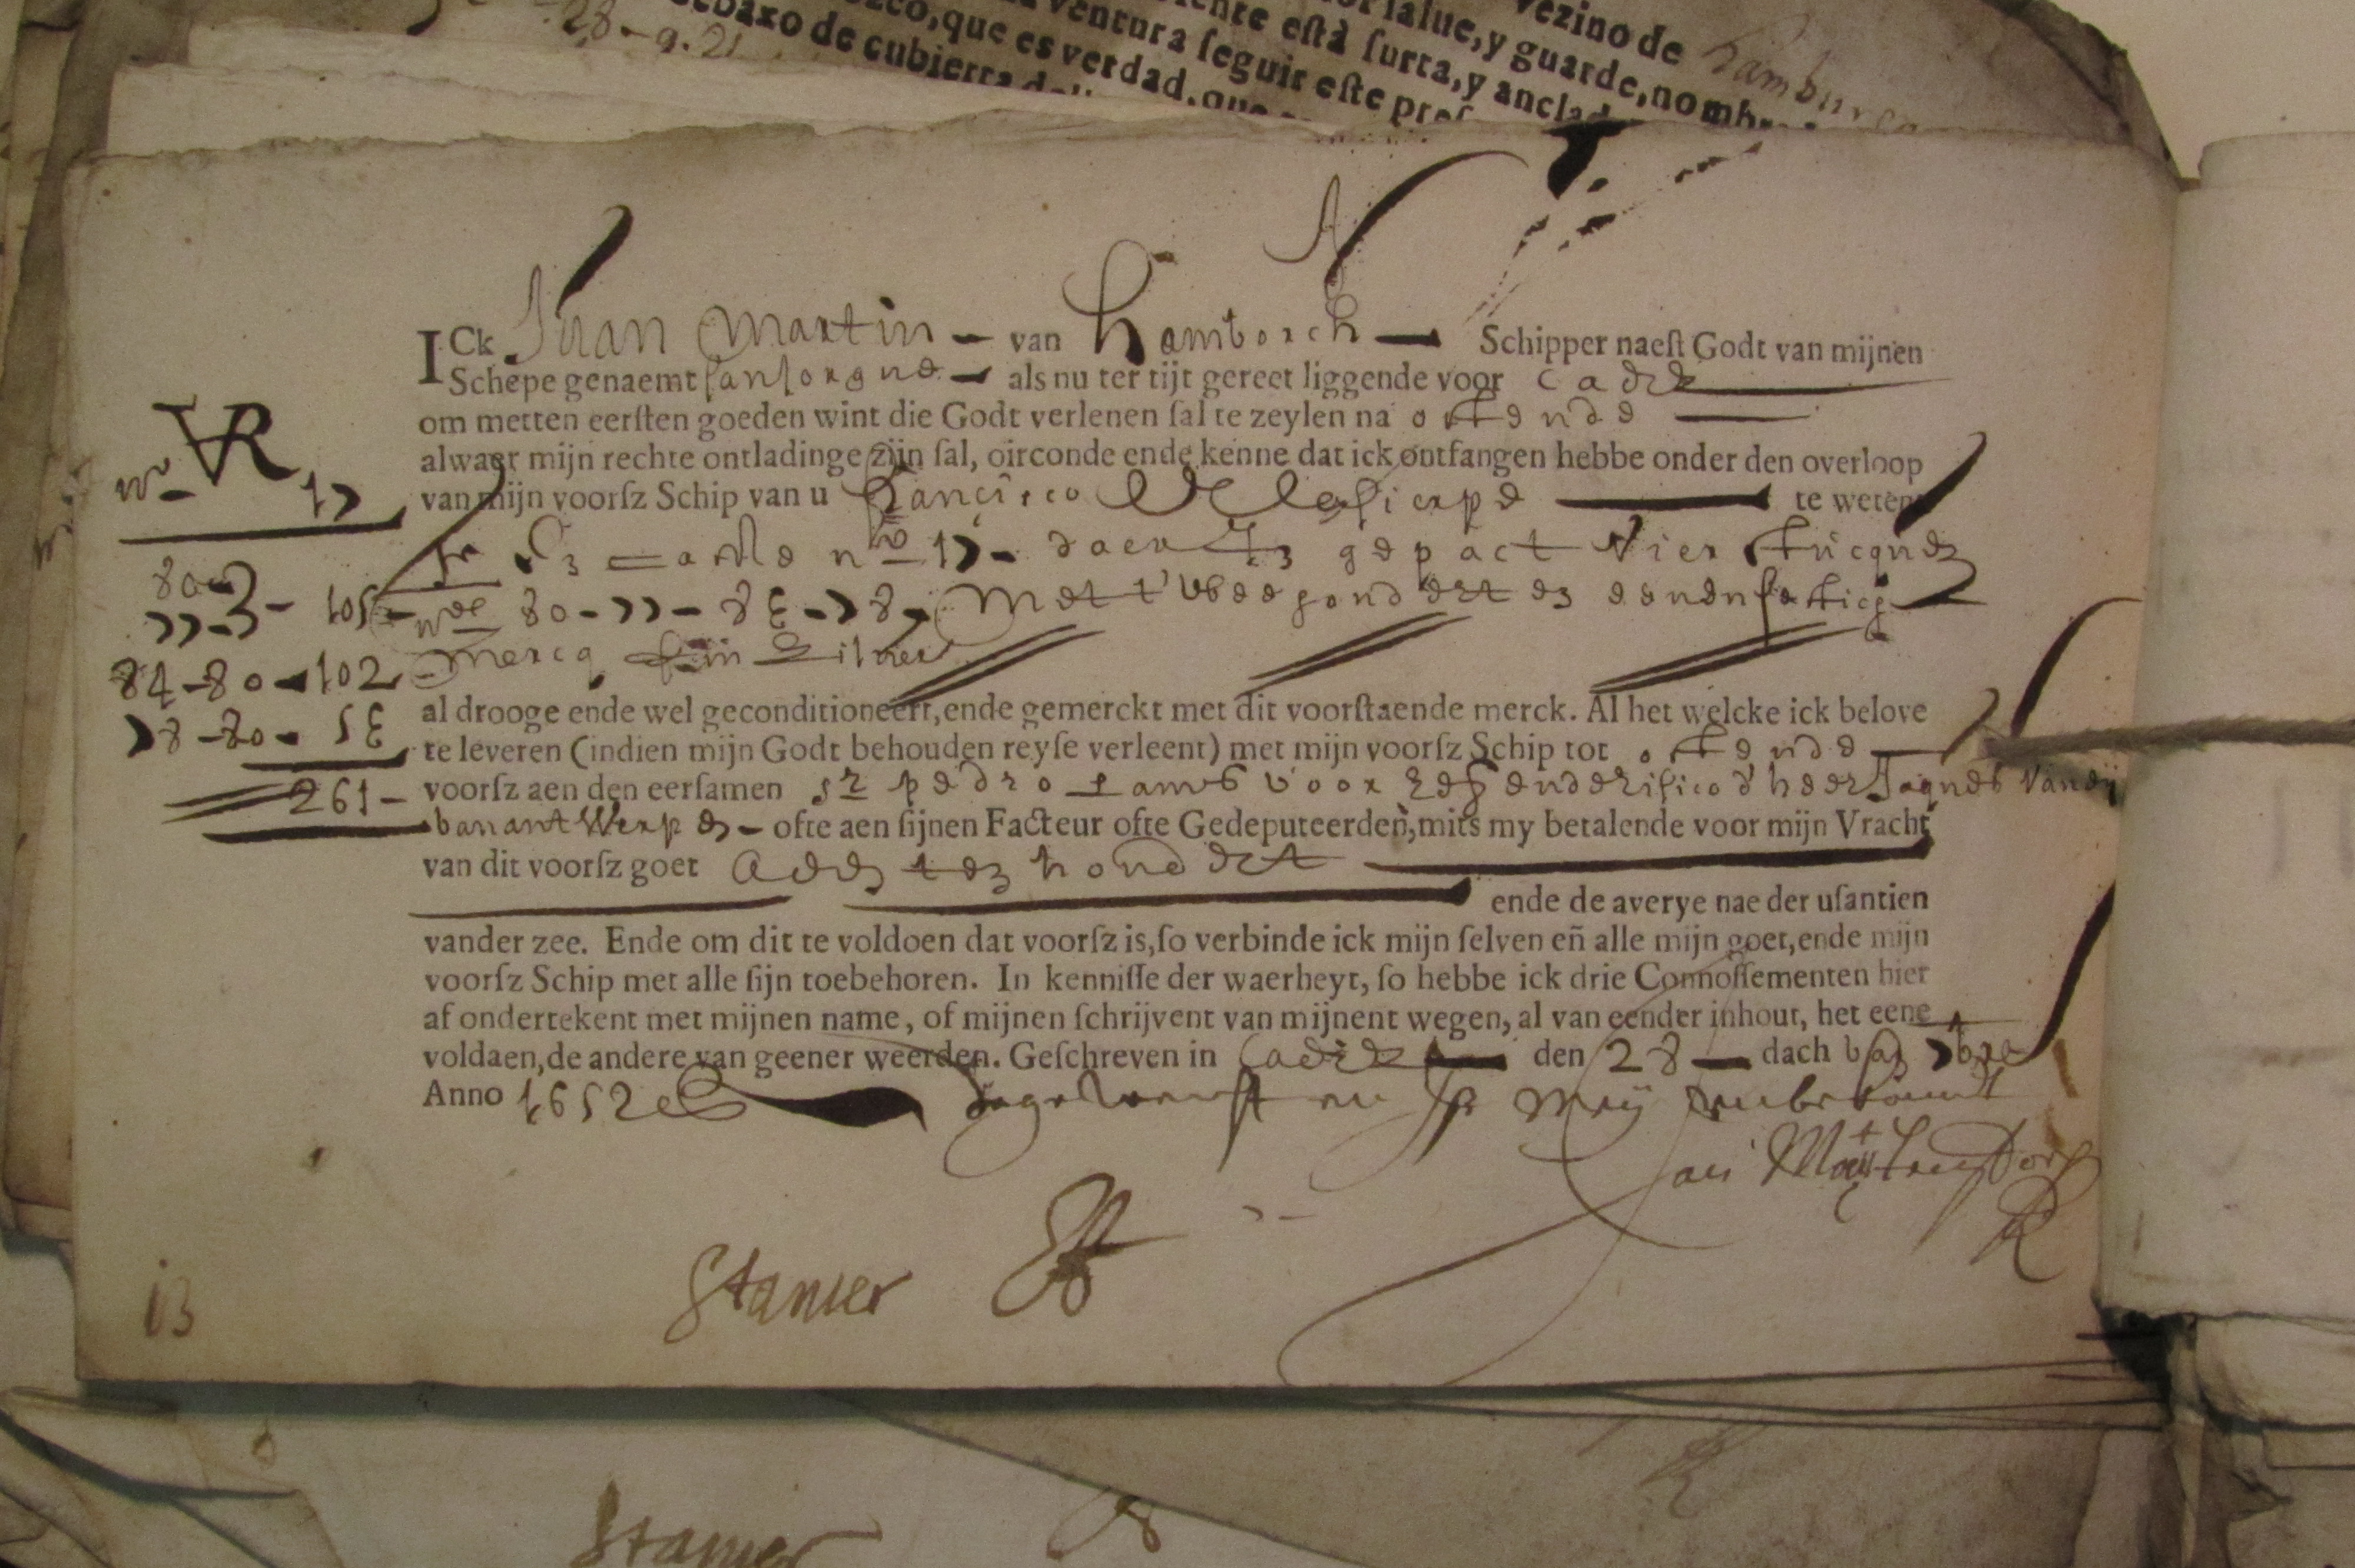 28-9.21
vezino de hamburco
salue, y guarde, nombr
está surta, y anclad
ventura seguir este pres
que es verdad, que
debaxo de cubierta
ICk Juan Martin van Hamborch Schipper naeſt Godt van mijnen
Schepe genaemt ſanſorgne als nu ter tijt gereet liggende voor cadix
om metten eerſten goeden wint die Godt verlenen ſal te zeylen na oſtende
alwaer mijn rechte ontladinge zijn ſal, oirconde ende kenne dat ick ontfangen hebbe onder den overloop
van mijn voorſz Schip van u francisco te weten
VR
no 17
no 17 daer in gepact vier stucques
80
77 - 105
nos 80-77-84-78 Met twee hondert en eenenseſtich
84-80-102
Mercq silver
78-80-54
al drooge ende wel geconditioneert, ende gemerckt met dit voorſtaende merck. Al het welcke ick belove
te leveren (indien mijn Godt behouden reyſe verleent) met mijn voorſz Schip tot oſtende
261-
voorſz aen den eerſamen sr pedro voor d heer Jaques van
van antwerpen ofte aen ſijnen Facteur ofte Gedeputeerden, mits my betalende voor mijn Vracht
van dit voorſz goet ten hondert
ende de averye nae der uſantien
vander zee. Ende om dit te voldoen dat voorſz is, ſo verbinde ick mijn ſelven eñ alle mijn goet, ende mijn
voorſz Schip met alle ſijn toebehoren. In kenniſſe der waerheyt, ſo hebbe ick drie Connoſſementen hier
af ondertekent met mijnen name, of mijnen ſchrijvent van mijnent wegen, al van eender inhout, het eene
voldaen, de andere van geener weerden. Geſchreven in Cadix den 28 dach van 7bre
Anno 1652
mey unbekannt
Jan
Stanier
13
Stanier